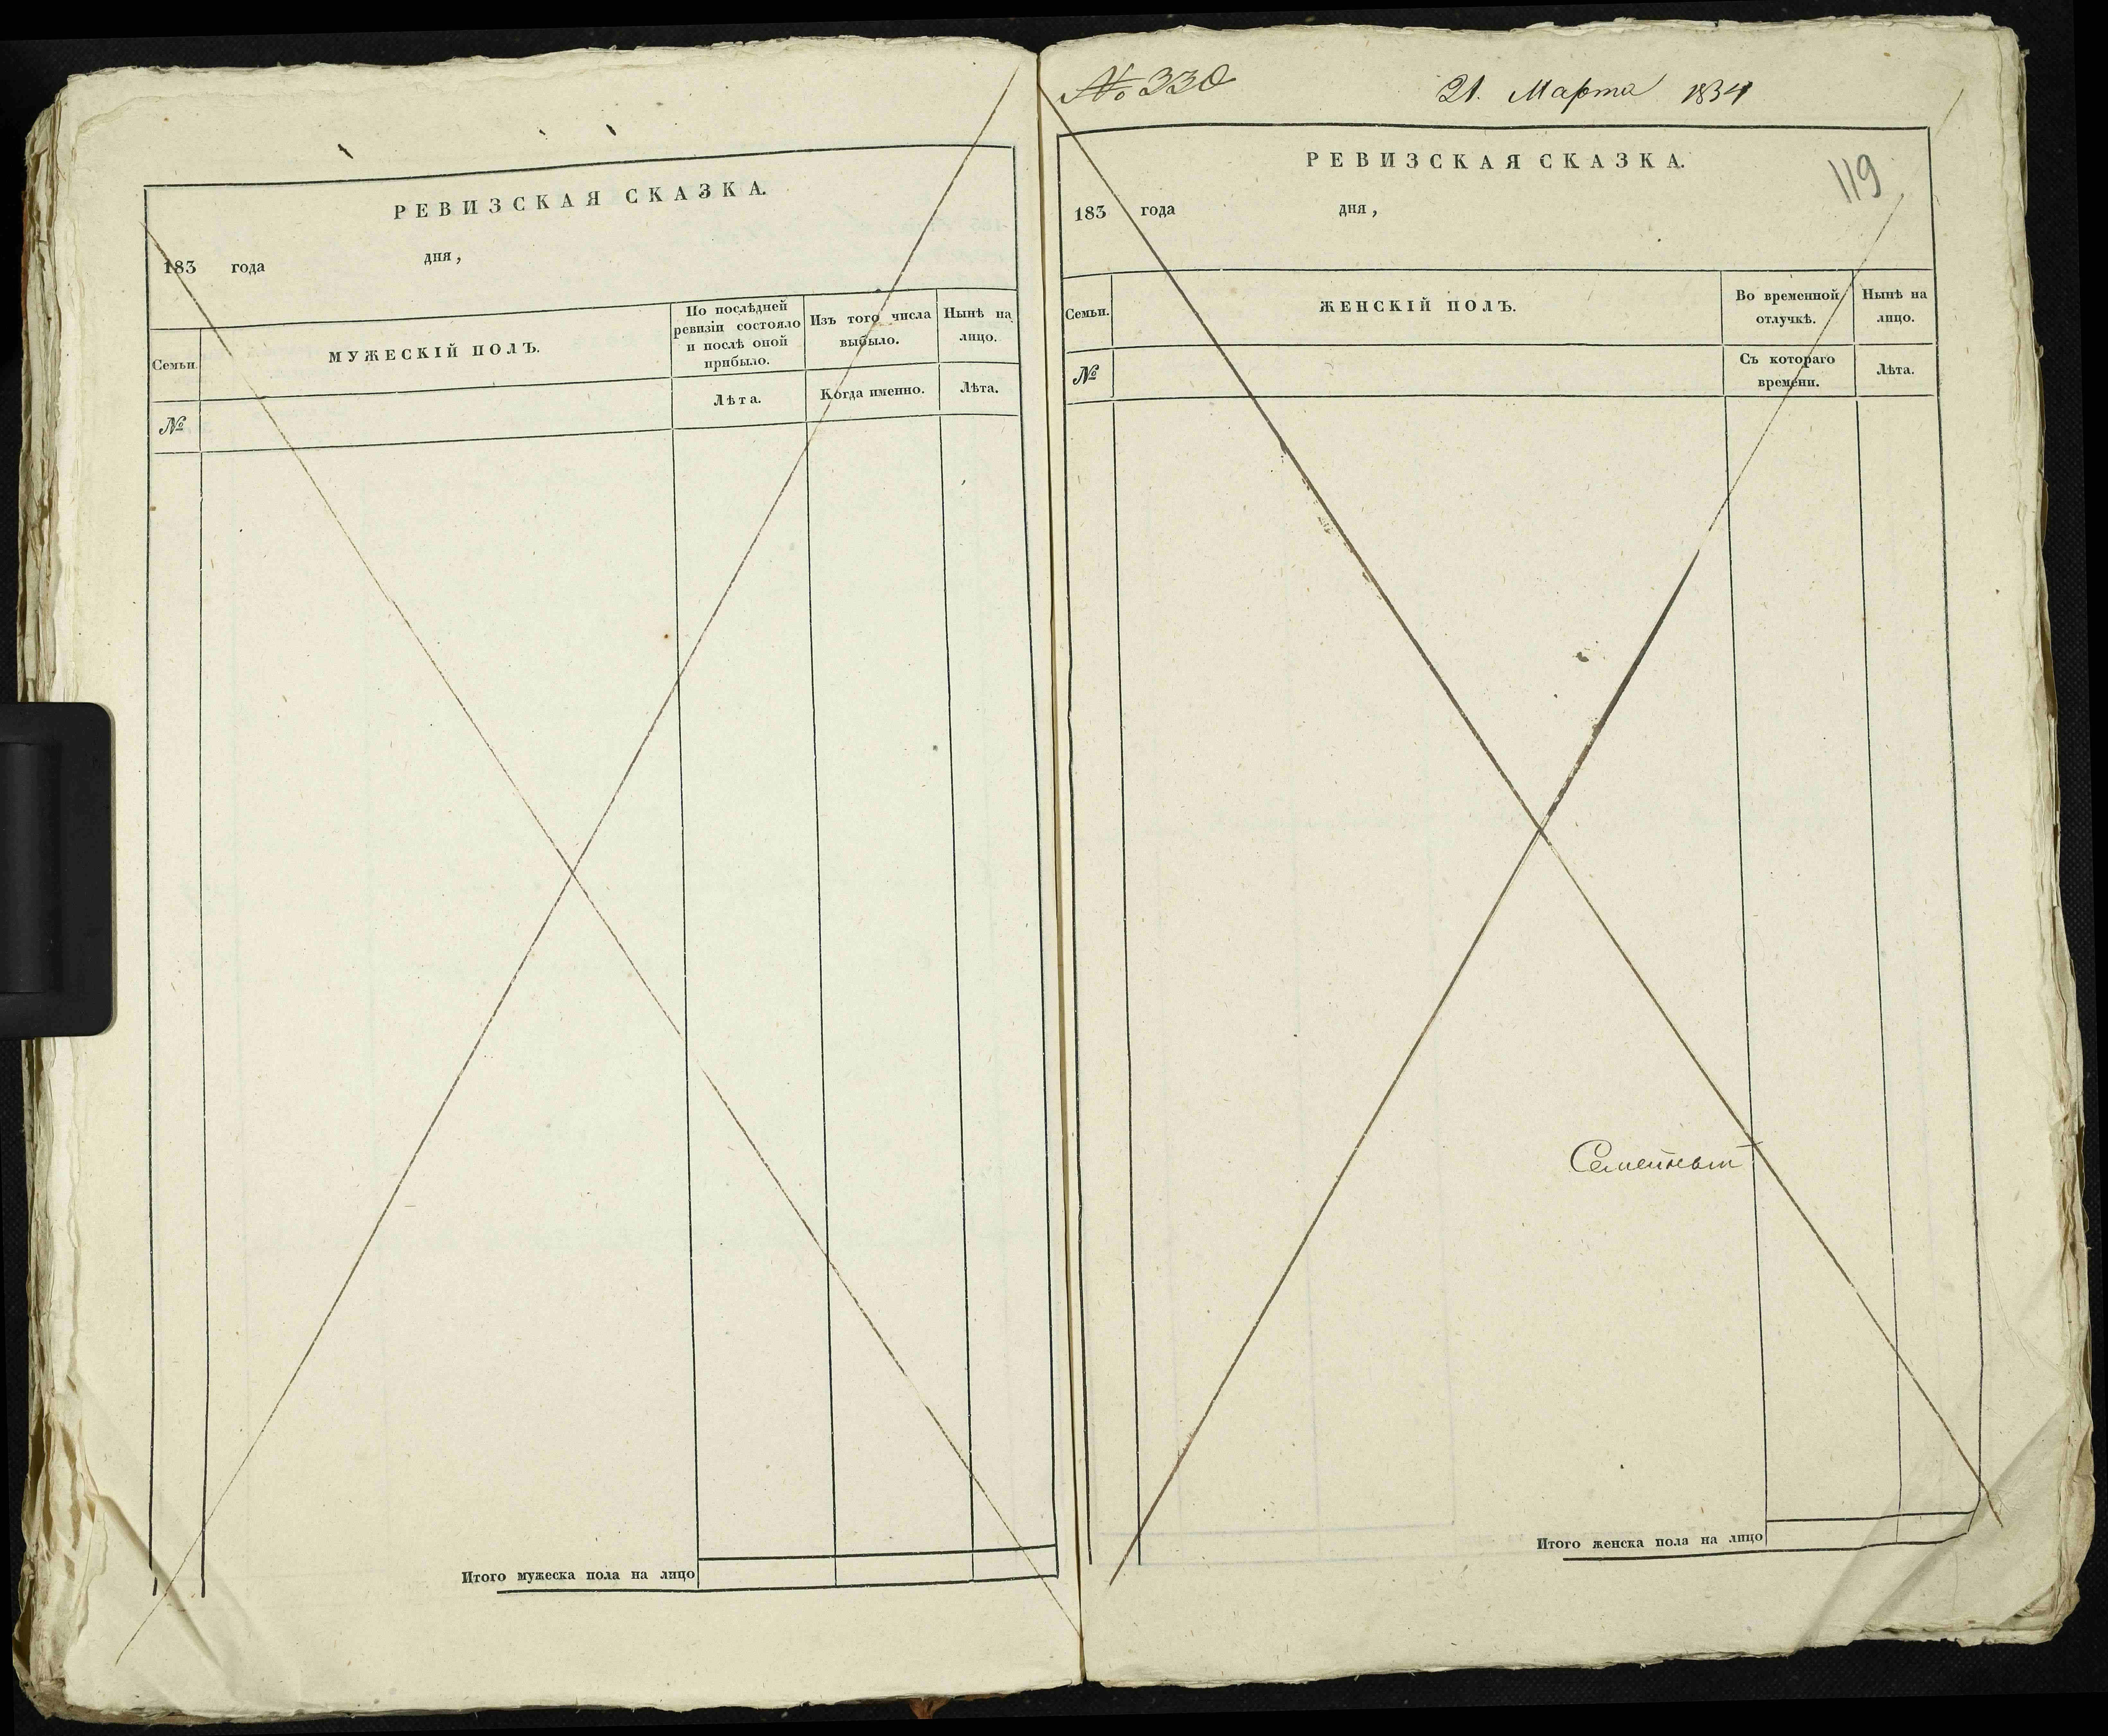 РЕВИЗСКАЯ СКАЗКА.
183 года дня,
Семьи.
МУЖЕСКІЙ ПОЛЪ.
По послѣдней
ревизіи состояло
и послѣ оной
прибыло.
Изъ того числа
выбыло.
Нынѣ на
лицо.
№
Лѣта.
Когда именно.
Лѣта.
Итого мужеска пола на лицо
№ 330 21. Марта 1834
РЕВИЗСКАЯ СКАЗКА.
119
183 года дня,
Семьи.
ЖЕНСКІЙ ПОЛЪ.
Во временной
отлучкѣ.
Нынѣ на
лицо.
№
Съ котораго
времени.
Лѣта.
Итого женска пола на лицо